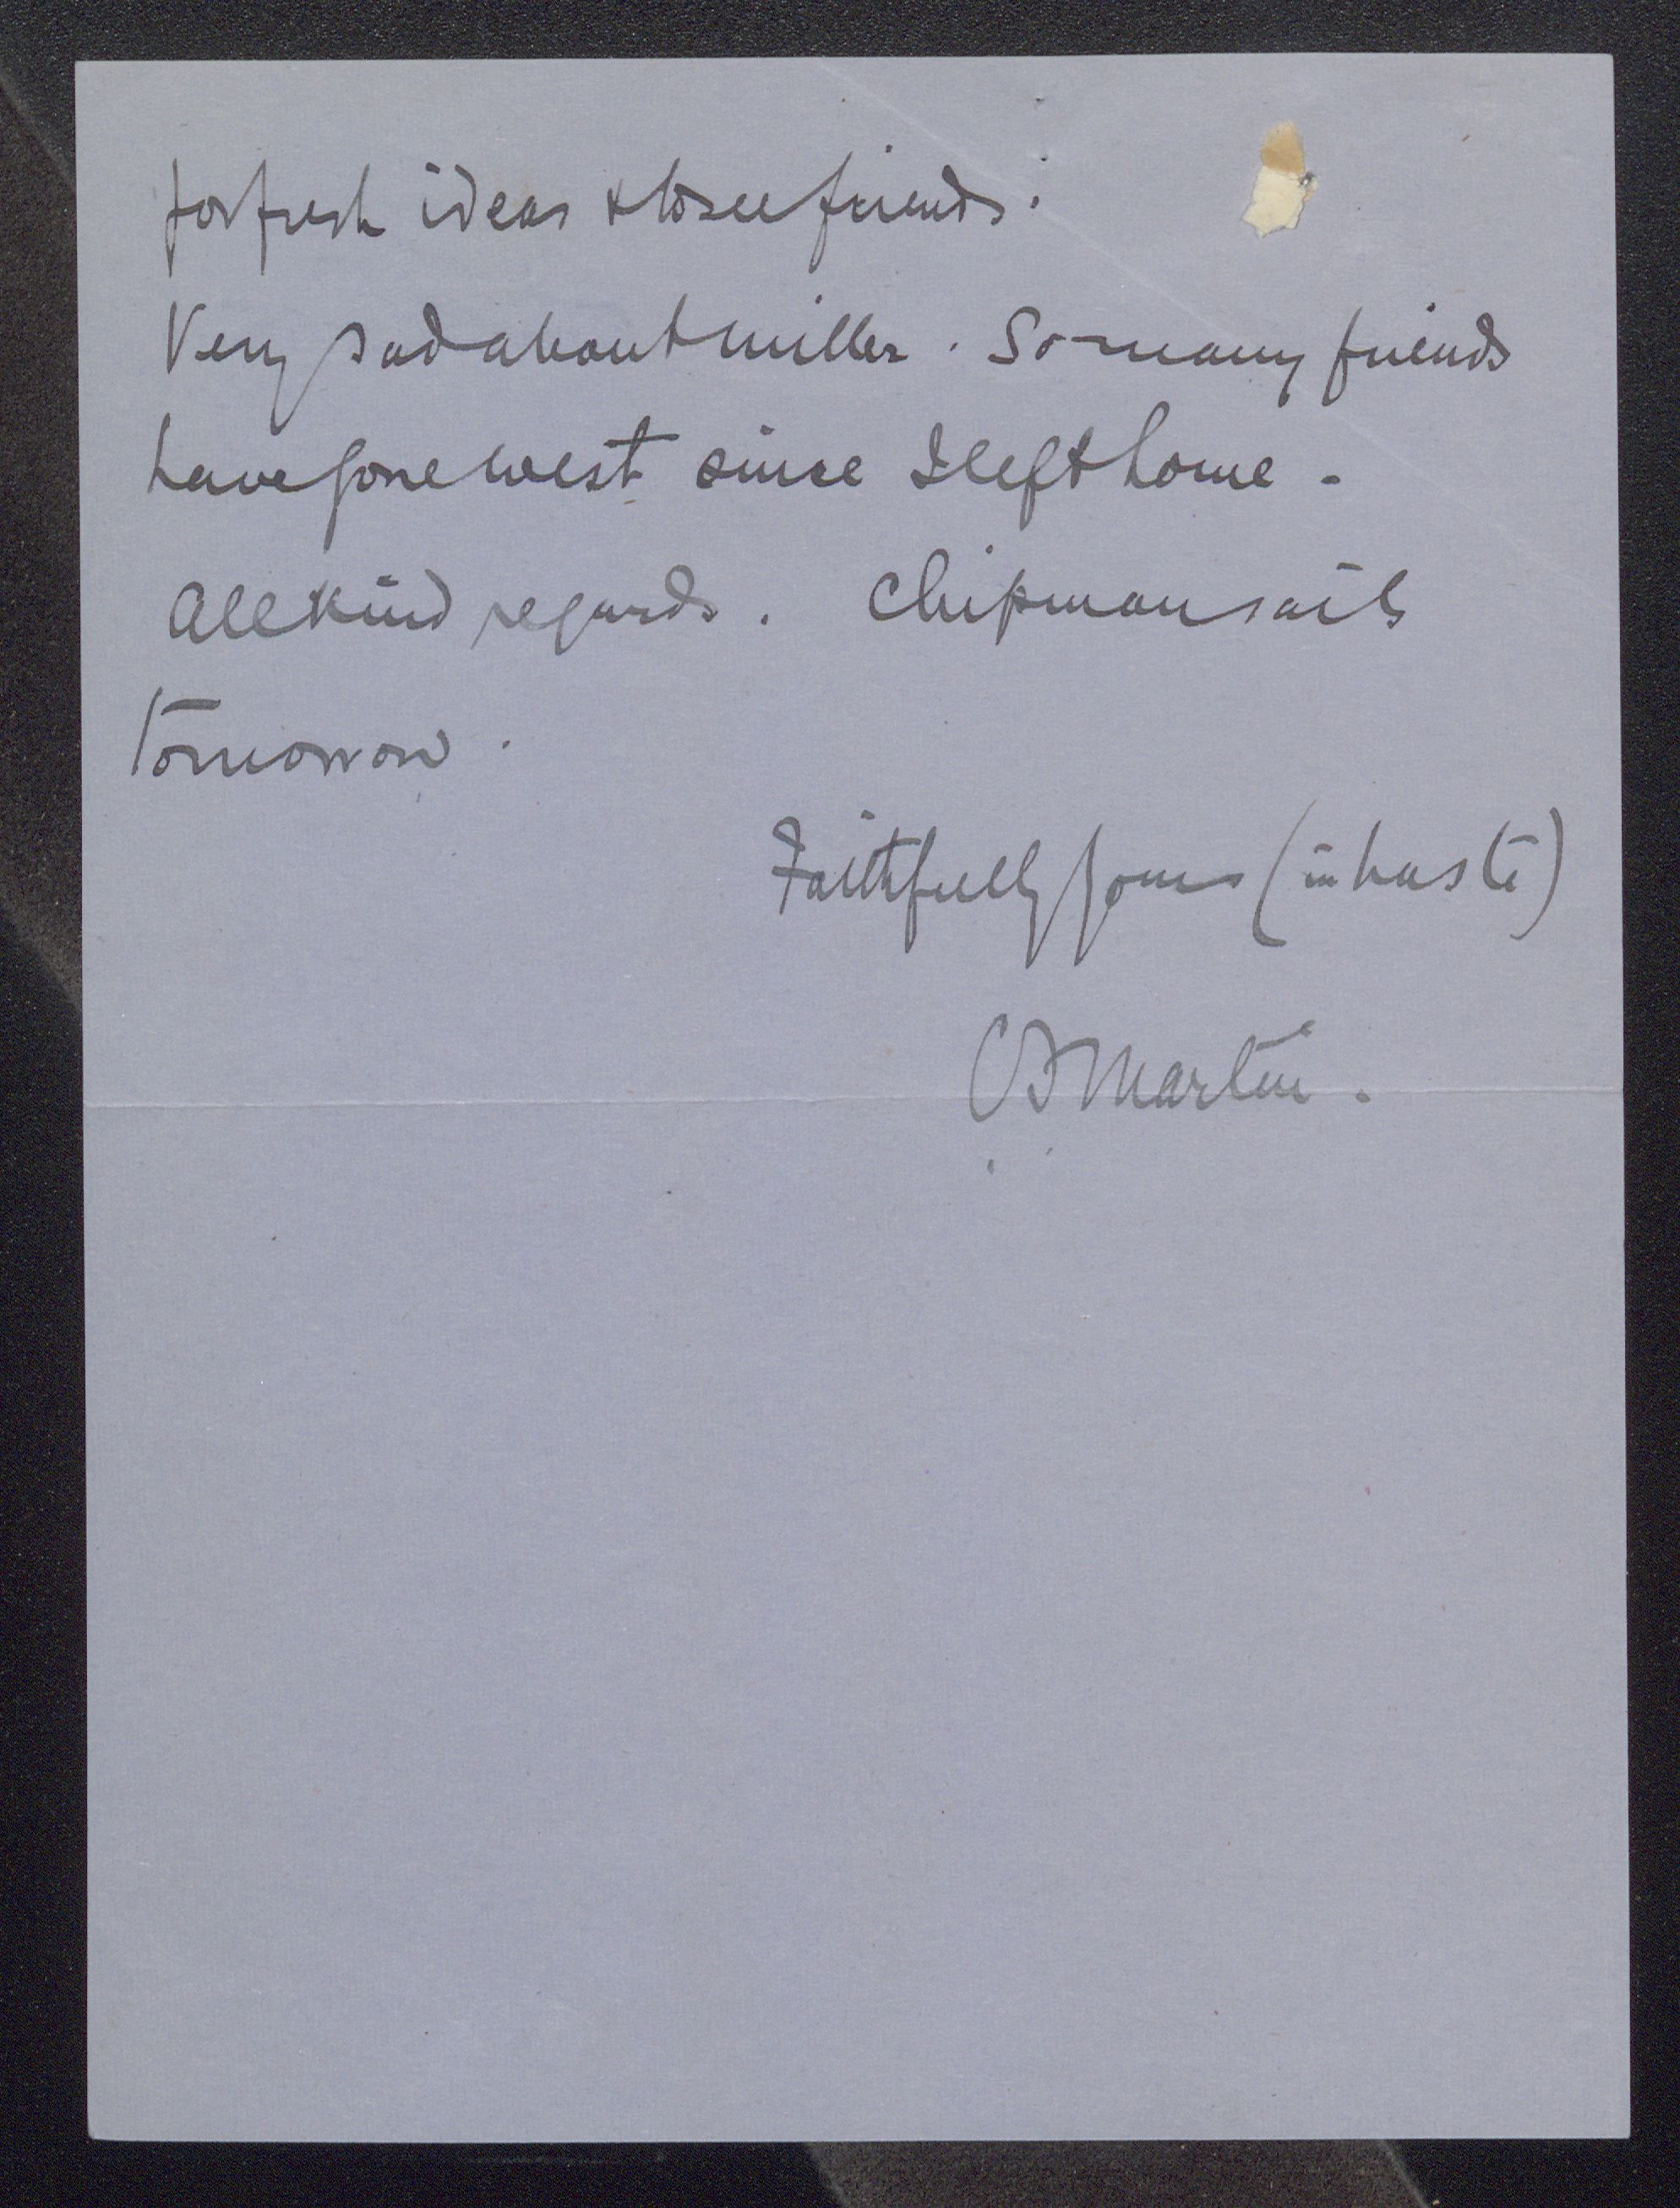 for fresh ideas & to see friends.
Very sad about Miller. So many friends
have gone west since I left home -
All kind regards. Chipman sails
tomorrow.
Faithfully yours (in haste)
C F Martin.